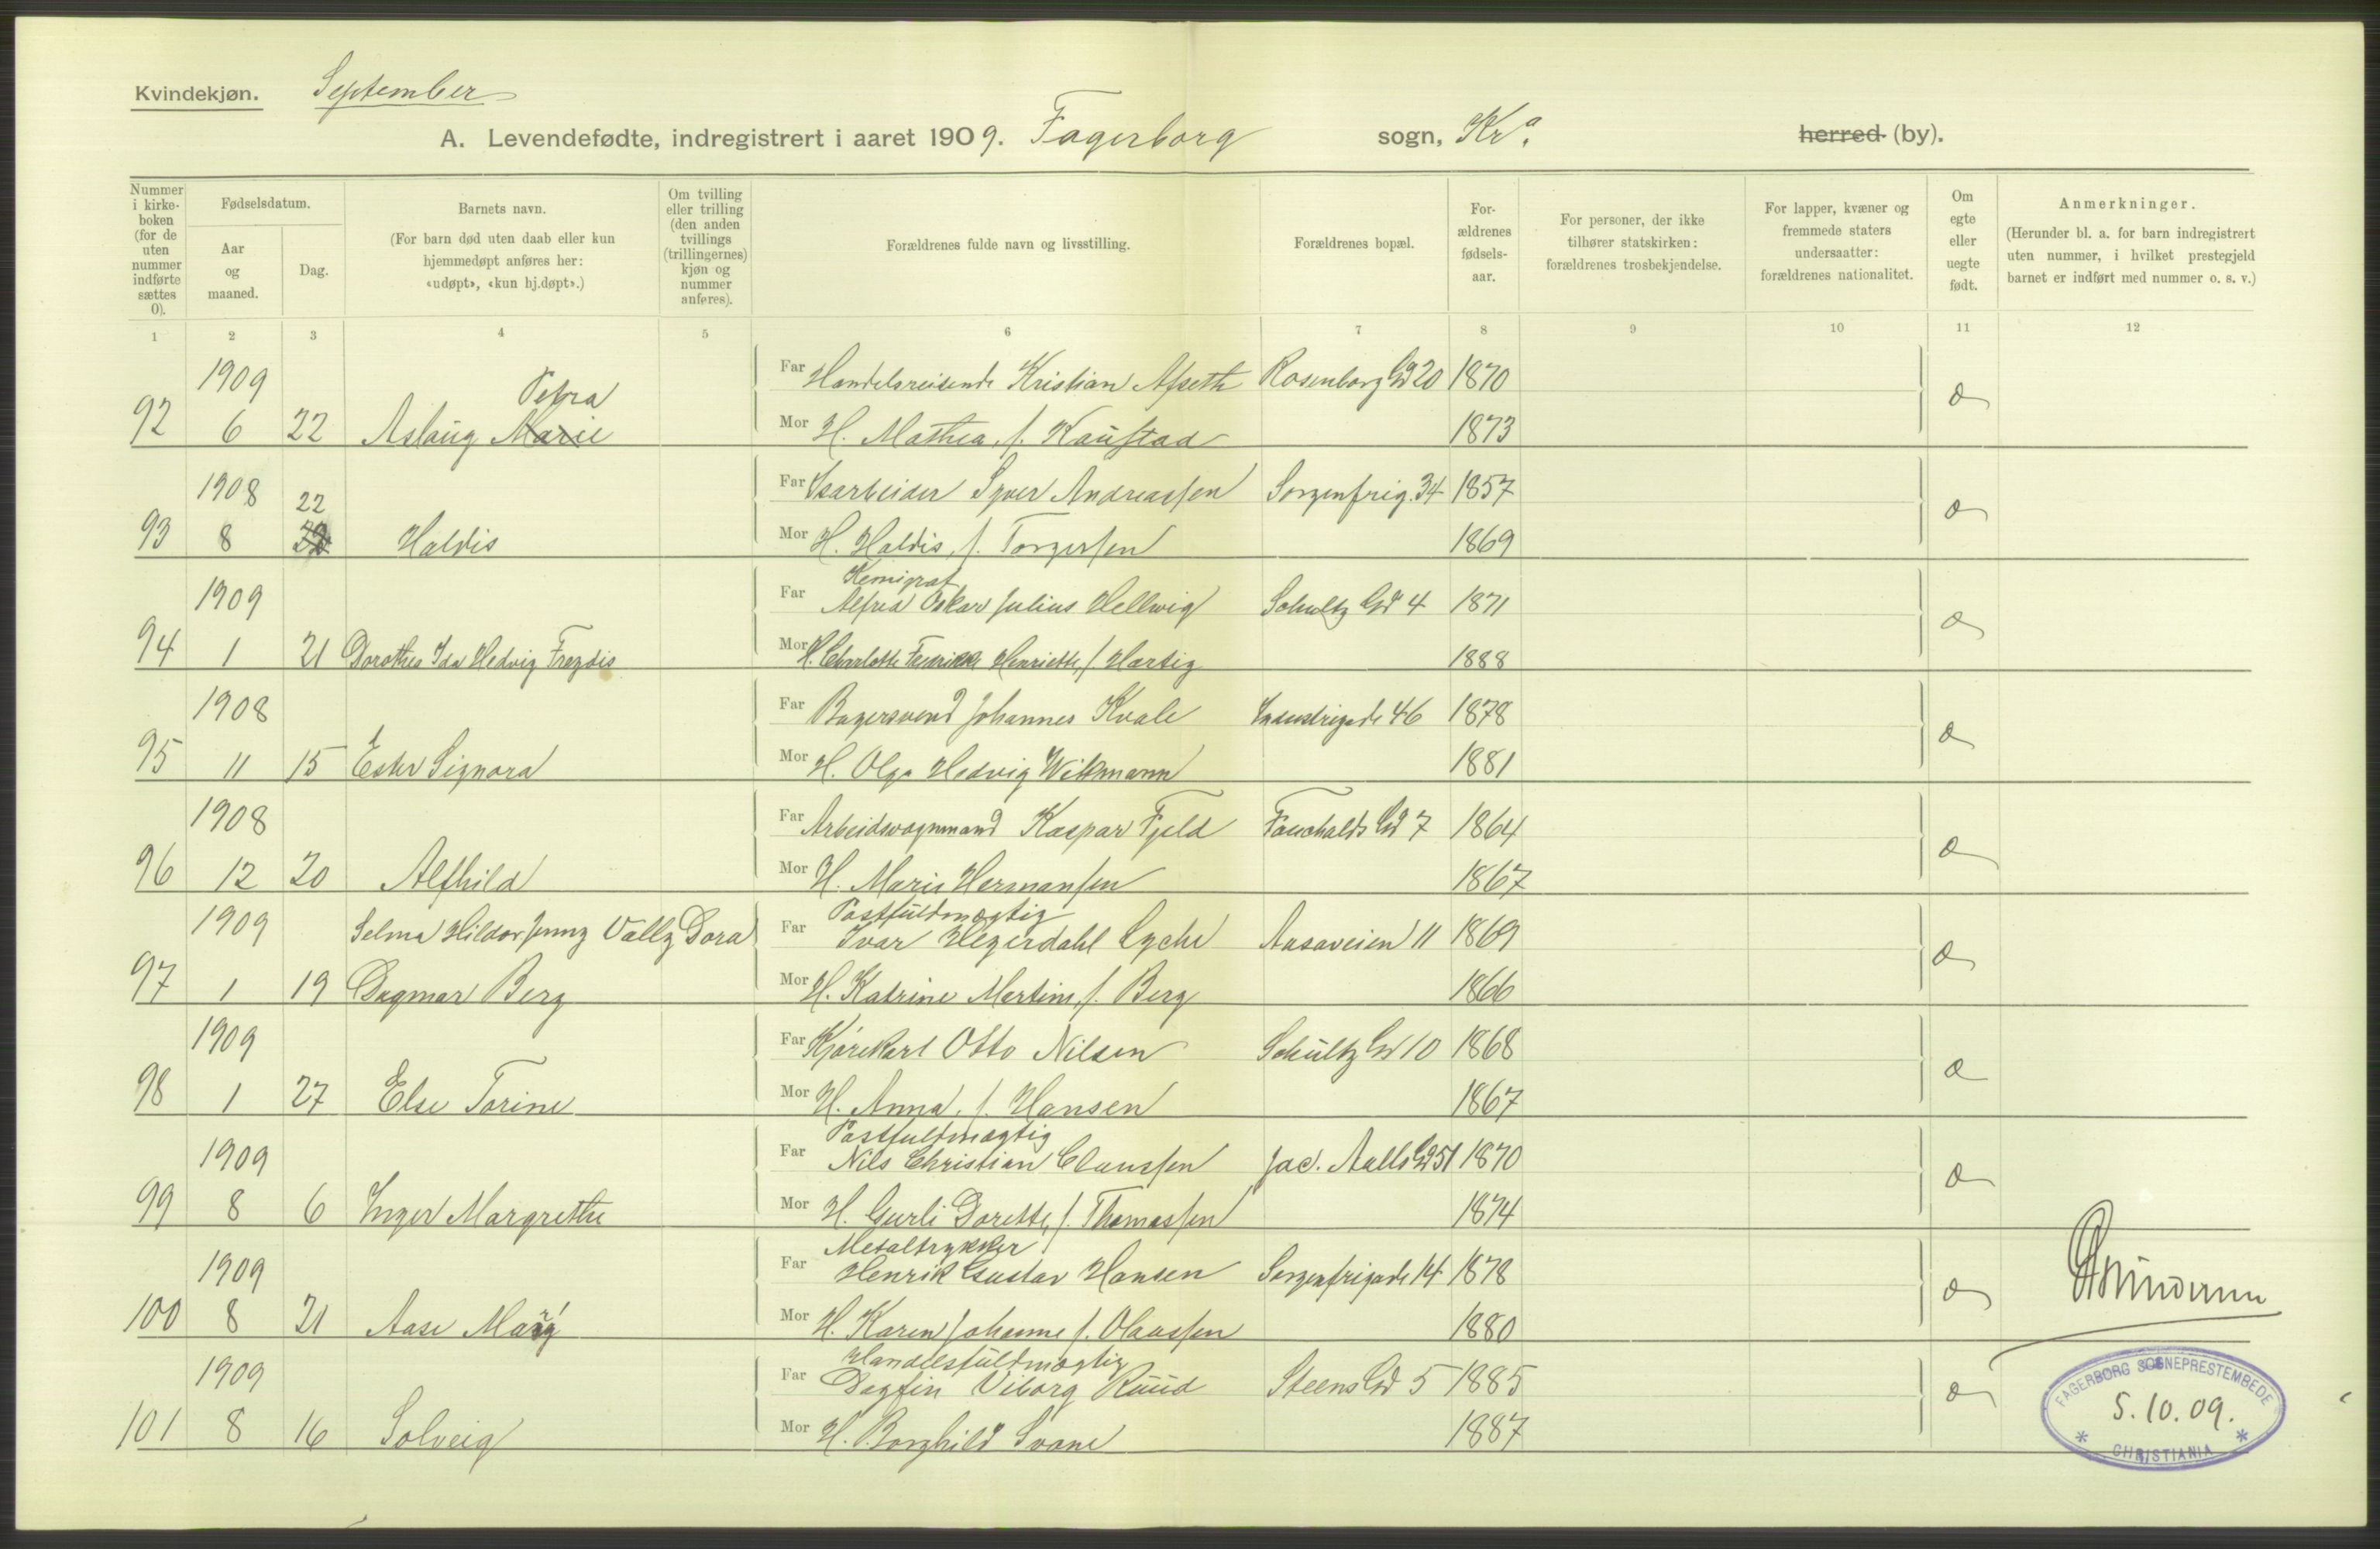 Kvindekjøn. September
A. Levendefødte, indregistrert i aaret 1909. Fagerborg sogn, Kra. herred (by).
Nummer i kirkeboken (for de uten nummer indførte sættes 0).
Fødselsdatum.
Aar og maaned.
Dag.
Barnets navn.
(For barn død uten daab eller kun hjemmedøpt anføres her: «udøpt», «kun hj.døpt».)
Om tvilling eller trilling (den anden tvillings (trillingernes) kjøn og nummer anføres).
Forældrenes fulde navn og livsstilling.
Forældrenes bopæl.
Forældrenes fødselsaar.
For personer, der ikke tilhører statskirken: forældrenes trosbekjendelse.
For lapper, kvæner og fremmede staters undersaatter: forældrenes nationalitet.
Om egte eller uegte født.
Anmerkninger.
(Herunder bl. a. for barn indregistrert uten nummer, i hvilket prestegjeld barnet er indført med nummer o. s. v.)
1 2 3 4 5 6 7 8 9 10 11 12
1909 Petra Far Handelsreisende Kristian Afseth Rosenborg Gd 20 1870
92 6 22 Aslaug Marie Mor H. Mathea, f. Kaustad 1873 æ
1908 22 Far Isarbeider Syver Andreassen Sorgenfrig. 34 1857
93 8 Haldis Mor H. Haldis, f. Torgersen 1869 æ
1909 Far Kemigraf
Alfred Oskar Julius Hellwig Schultz Gd 4 1871
94 1 21 Dorothea Ida Hedvig Frezdis Mor H. Charlotte Fredrikke Henriette, f. Hartig 1888 æ
1908 Far Bagersvend Johannes Kvale Industrigade 46 1878
95 11 15 Ester Signora Mor H. Olga Hedvig Wikmann 1881 æ
1908 Far Arbeidsvognmand Kaspar Fjeld Fauchalds Gd 7 1864
96 12 20 Alfhild Mor H. Marie Hermansen 1867 æ
1909 Selma Hildor Jenny Vally Dora Far Postfuldmægtig
Ivar Hegerdahl Lyche Aasaveien 11 1869
97 1 19 Dagmar Berg Mor H. Katrine Martine, f. Berg 1866 æ
1909 Far Kjørekarl Otto Nilsen Schultz Gd 10 1868
98 1 27 Else Torine Mor H. Anna, f. Hansen 1867 æ
1909 Far Postfuldmægtig
Nils Christian Claussen Jac. Aalls Gd 51 1870
99 8 6 Inger Margrethe Mor H. Gurli Dorette, f. Thomassen 1874 æ
1909 Far Metaltrykker
Henrik Gustav Hansen Sorgenfrigade 14 1878
100 8 21 Aase Mor H. Karen Johanne f. Olaussen 1880 æ
1909 Far Handelsfuldmægtig
Dagfin Viborg Ruud Steens Gd 5 1885
101 8 16 Solveig Mor H. Borghild Svane 1887 æ
FAGERBORG SOGNEPRESTEMBEDE
5.10.09.
* CHRISTIANIA *